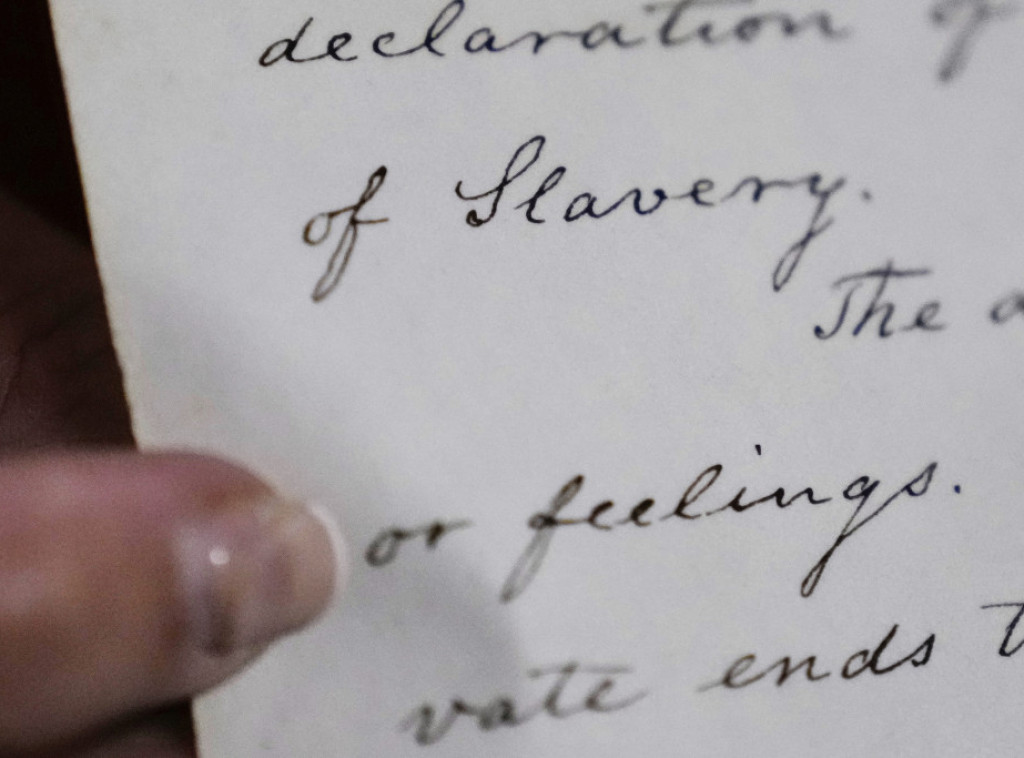 declaration of
of Slavery.
The
or feelings.
vate ends